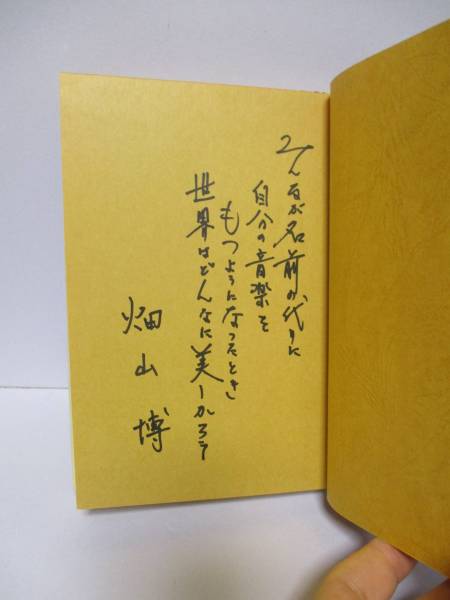 みんなが名前の代りに
自分の音楽を
もつようになったとき
世界はどんなに美しかろう
畑山博